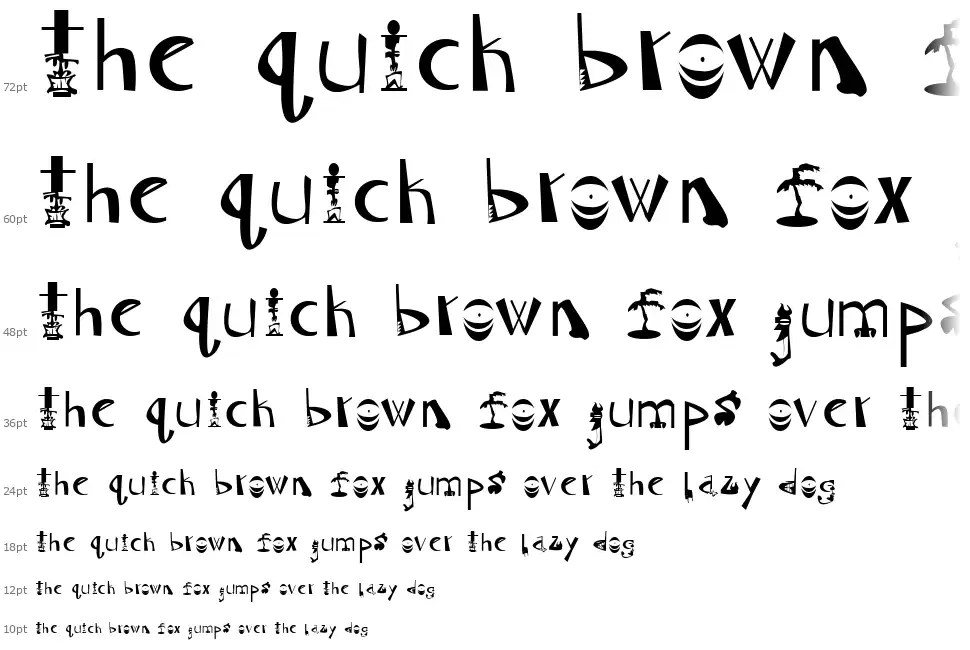 72pt the quick brown f
60pt the quick brown fox
48pt the quick brown fox jumps
36pt the quick brown fox jumps over the
24pt the quick brown fox jumps over the lazy dog
18pt the quick brown fox jumps over the lazy dog
12pt the quick brown fox jumps over the lazy dog
10pt the quick brown fox jumps over the lazy dog